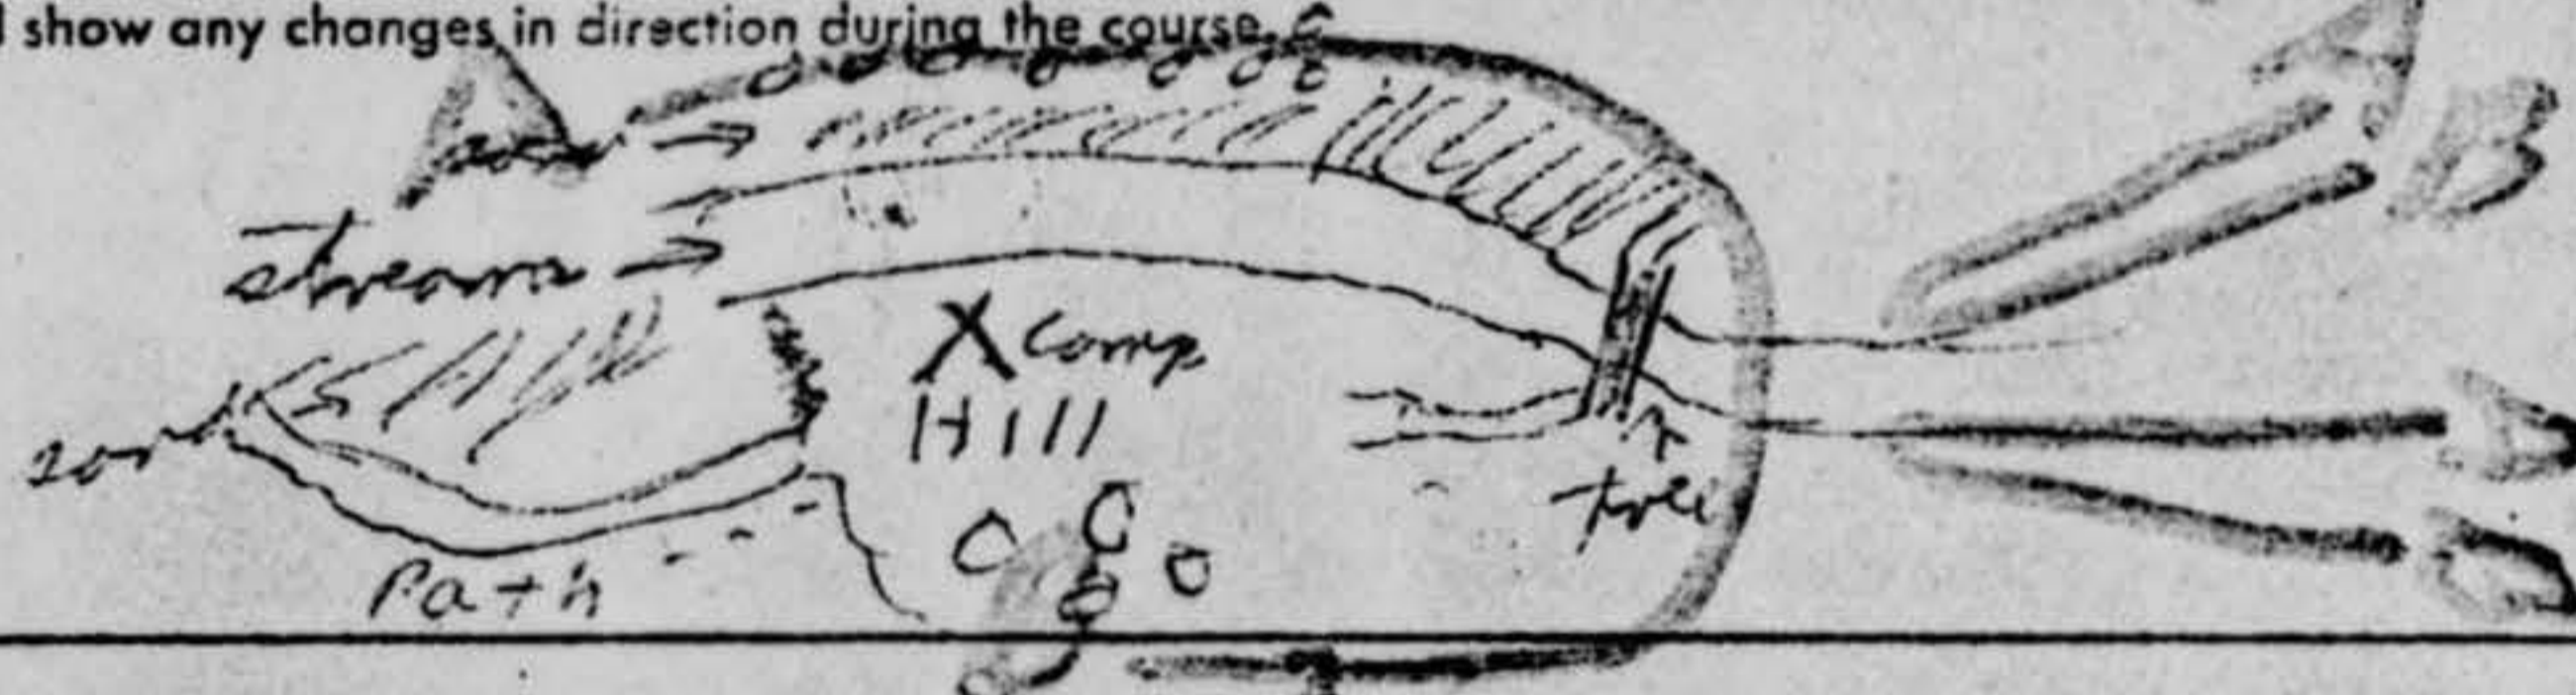 show any changes in direction during the course.
A
B
stream
X Comp
Hill
tree
Path